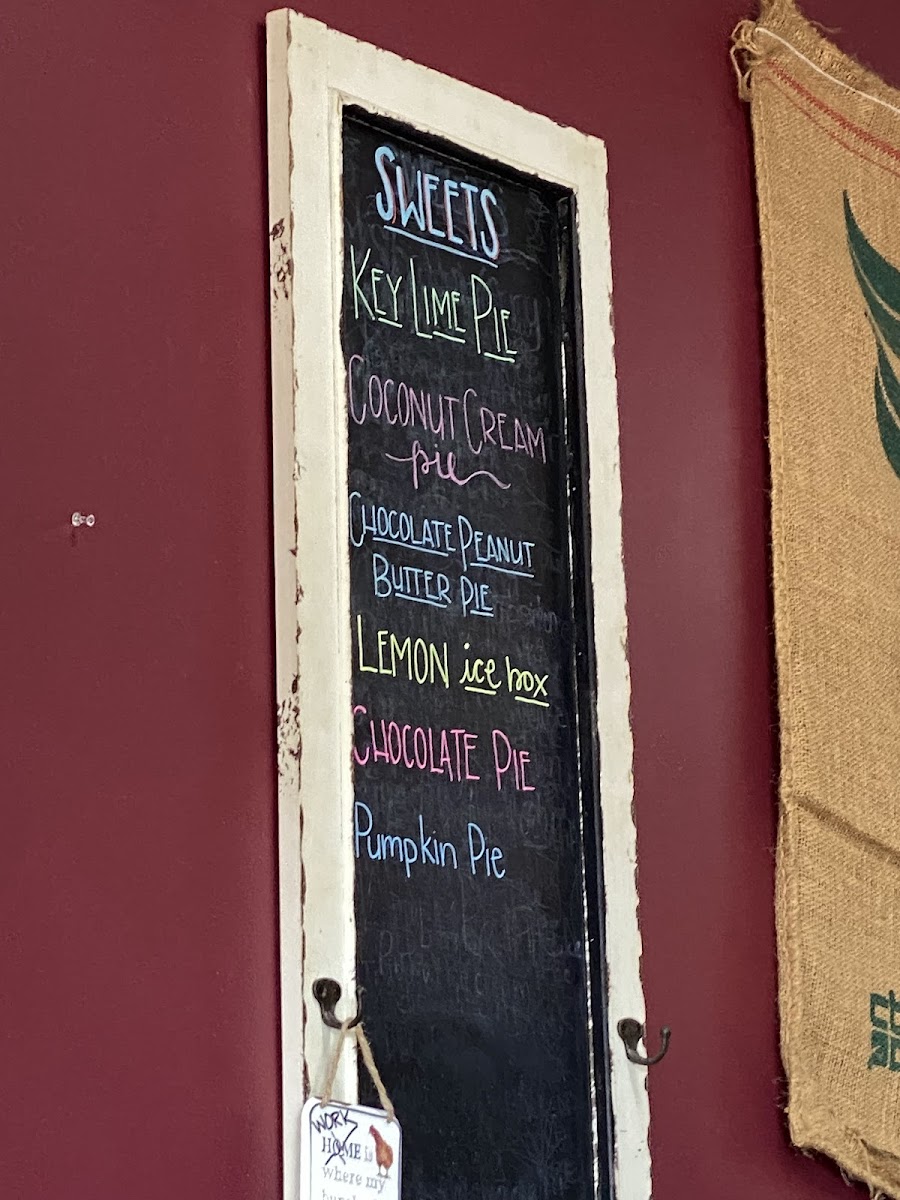 SWEETS
KEY LIME PIE
COCONUT CREAM
pie
CHOCOLATE PEANUT
BUTTER PIE
LEMON ice box
CHOCOLATE PIE
Pumpkin Pie
WORK
HOME is
where my